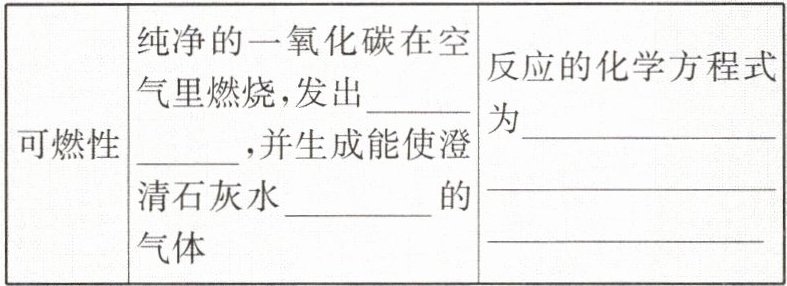 可燃性
纯净的一氧化碳在空
气里燃烧,发出______
______,并生成能使澄
清石灰水________的
气体
反应的化学方程式
为______________
________________
________________